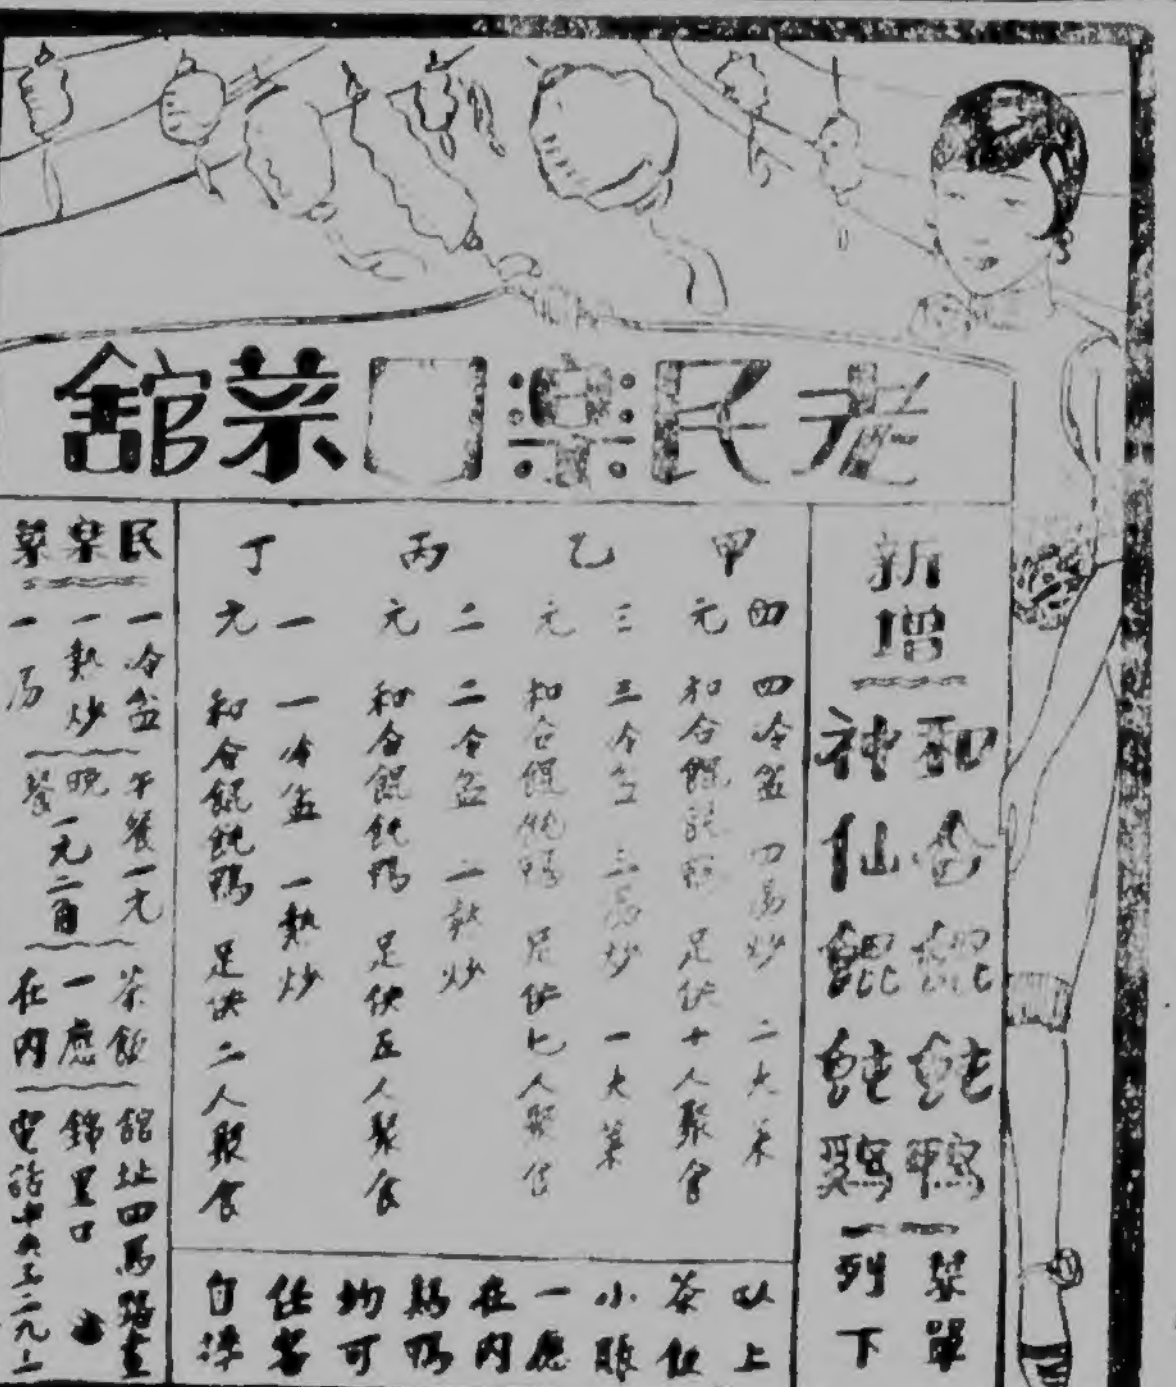 老民樂園菜館
新增
和合餛飩鴨
神仙餛飩鷄
菜單
列下
甲
四四冷盆 四熱炒 二大菜
元 和合餛飩鴨 足供十人聚食
乙
三三冷盆 三熱炒 一大菜
元 和合餛飩鴨 足供七人聚食
丙
二二冷盆 二熱炒
元 和合餛飩鴨 足供五人聚食
丁
一一冷盆 一熱炒
元 和合餛飩鴨 足供二人聚食
以上
茶飯
小賬
一應
在內
鷄鴨
均可
任客
自擇
民樂菜
一冷盆
一熱炒
一湯
午餐一元
晚餐一元二角
茶飯
一應
在內
館址四馬路畫
錦里口
電話中央